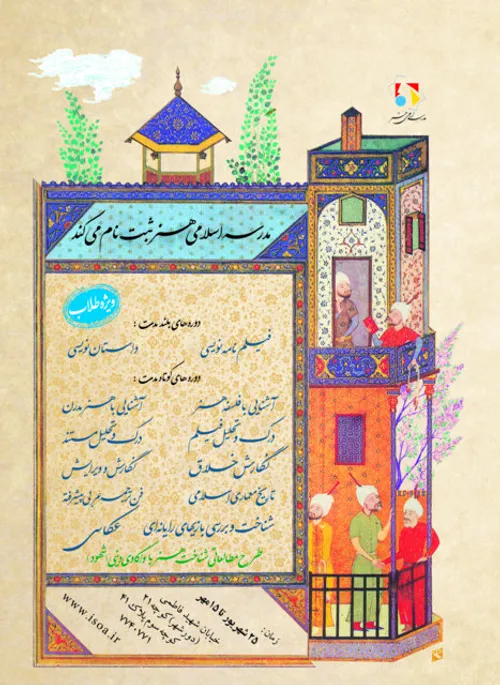 مدرسه اسلامی هنر
مدرسه اسلامی هنر ثبت نام می کند
ویژه طلاب
دوره های بلند مدت :
فیلم نامه نویسی
داستان نویسی
دوره های کوتاه مدت :
آشنایی با فلسفه هنر
آشنایی با هنر مدرن
درک و تحلیل فیلم
درک و تحلیل مستند
نگارش خلاق
نگارش و ویرایش
تاریخ معماری اسلامی
فن ترجمه پیشرفته
شناخت و بررسی بازیهای رایانه ای
عکاسی
طرح مطالعاتی شناخت هنر با واکاوی دینی (شهود)
زمان: ۲۵ شهریور تا ۱۵ مهر
خیابان شهید فاطمی
(دورشهر) کوچه ۲۱
کوچه سوم پلاک ۴۱
۷۷۴۰۷۷۱
www.isoa.ir